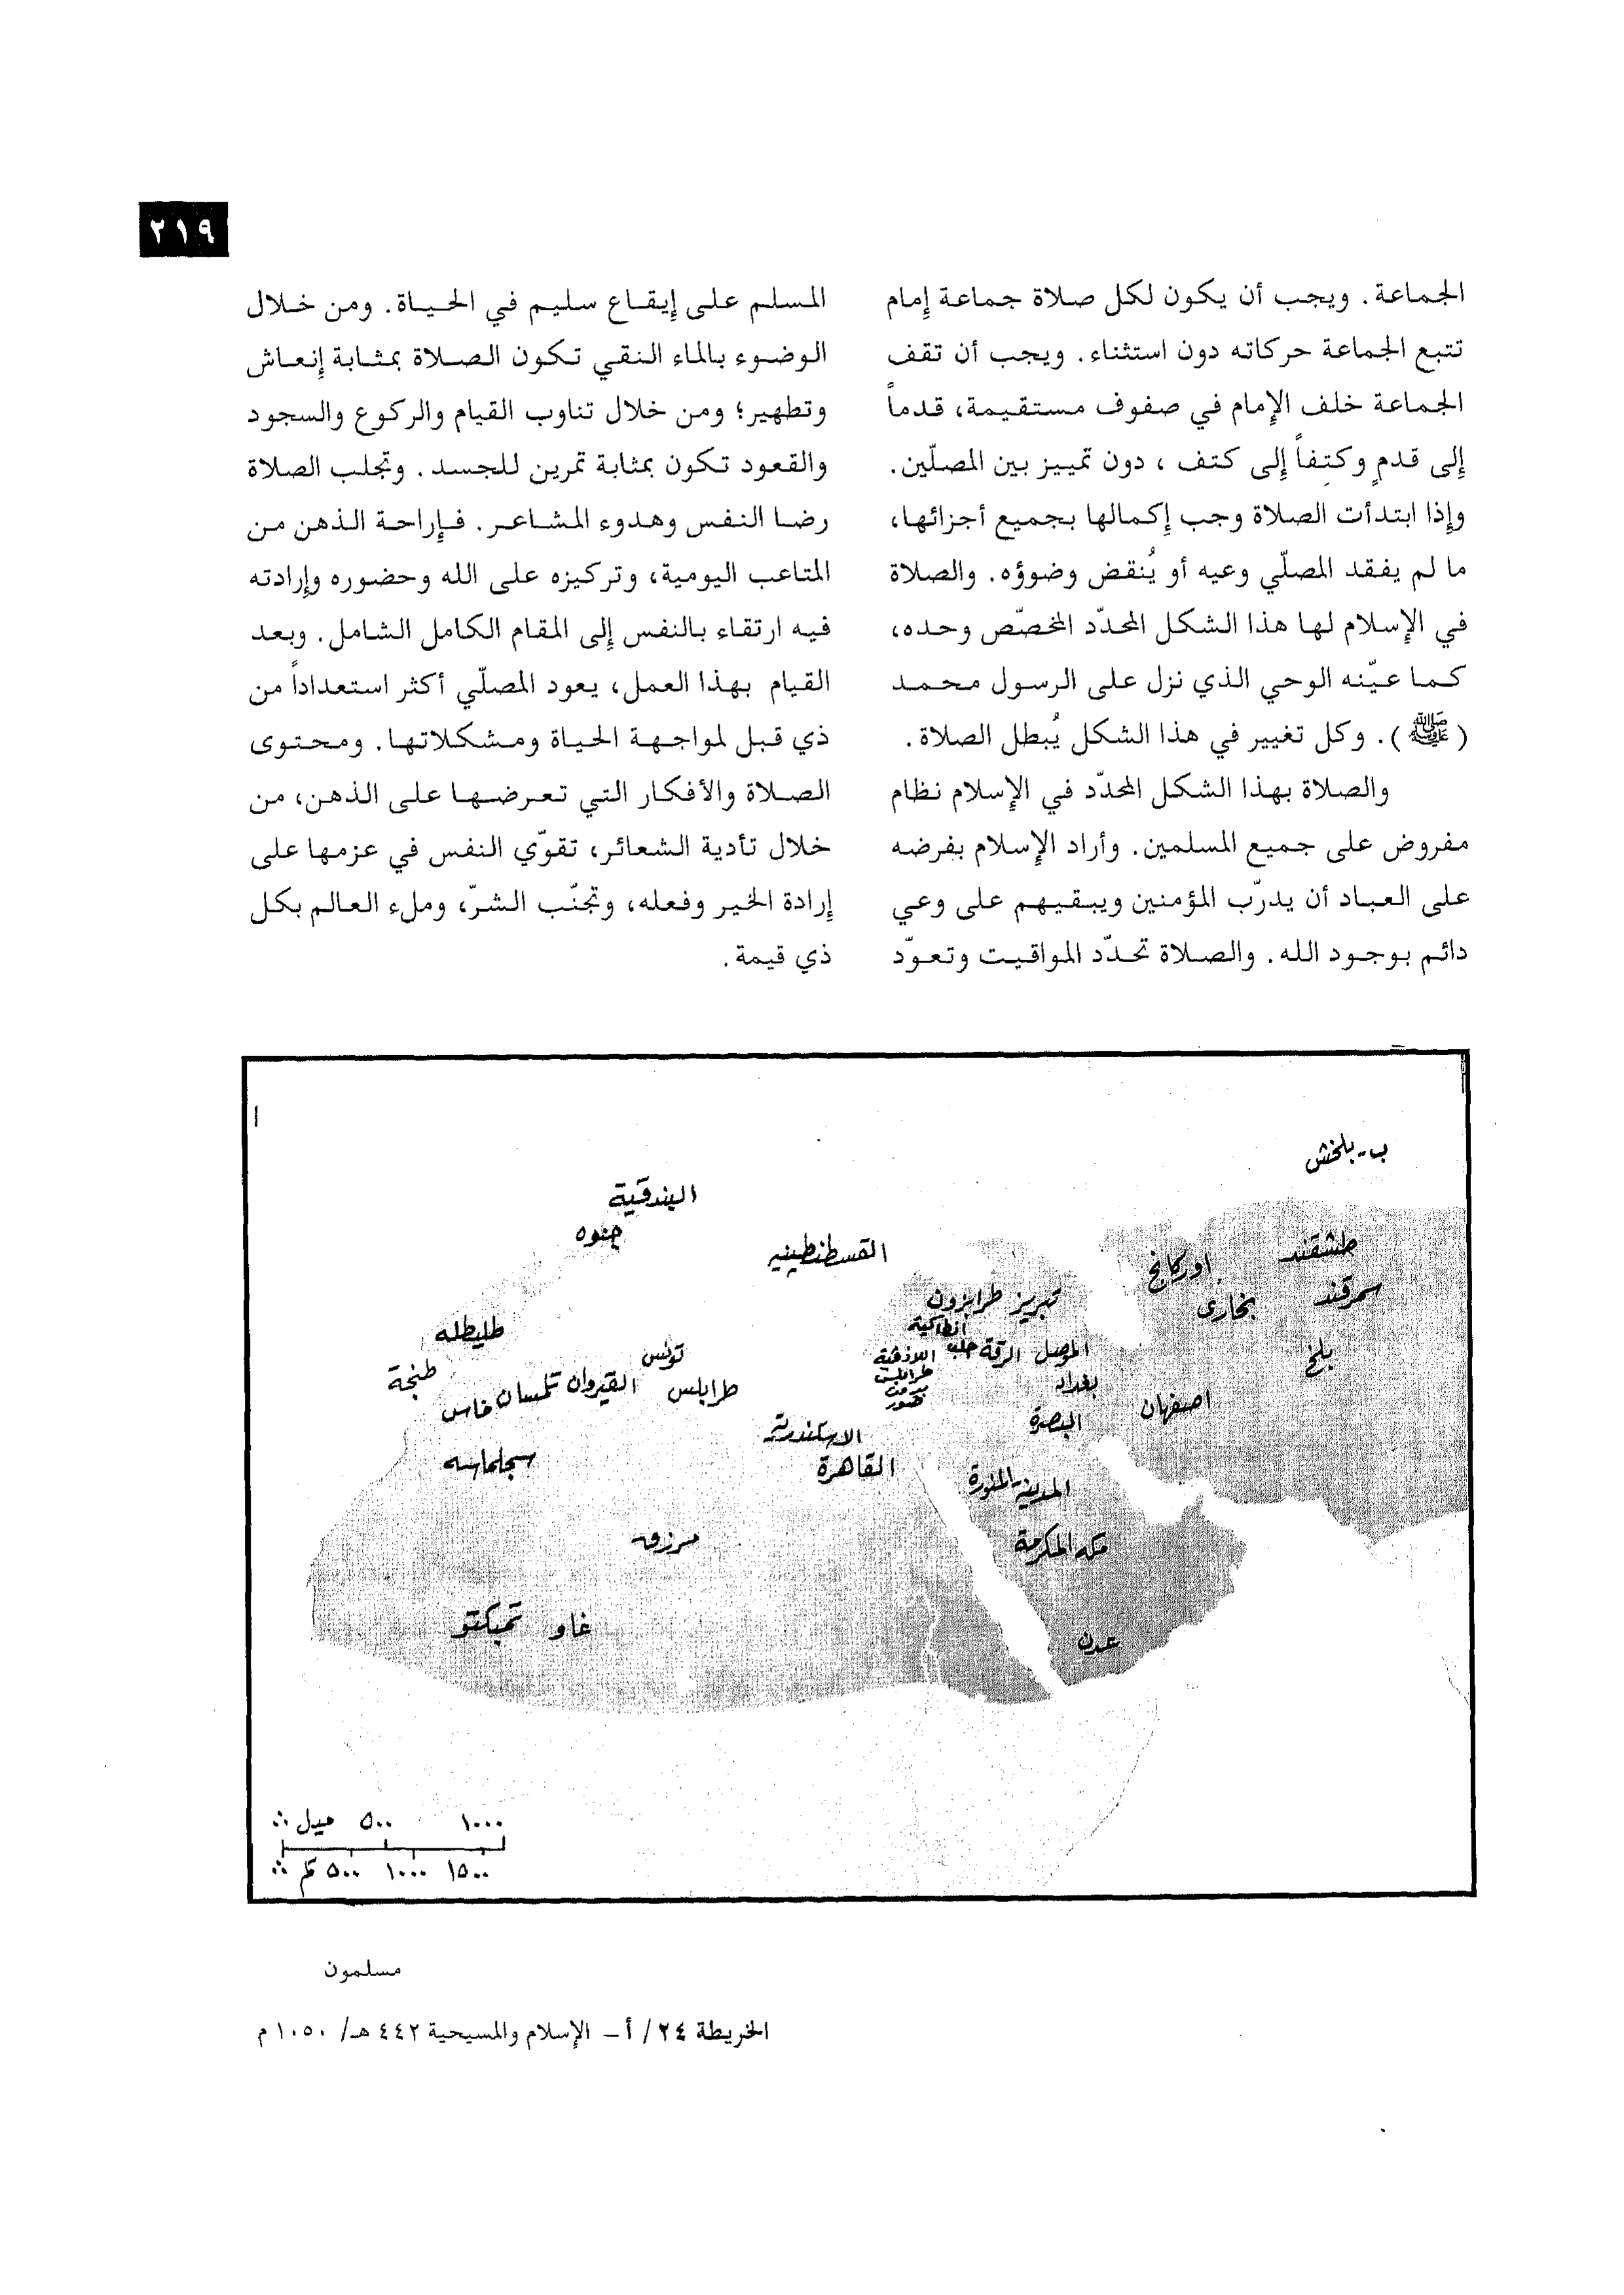 ٢١٩
الجماعة. ويجب أن يكون لكل صلاة جماعة إمام
تتبع الجماعة حركاته دون استثناء. ويجب أن تقف
الجماعة خلف الإمام في صفوف مستقيمة، قدماً
إلى قدمٍ وكتِفاً إلى كتف ، دون تمييز بين المصلّين.
وإذا ابتدأت الصلاة وجب إكمالها بجميع أجزائها،
ما لم يفقد المصلّي وعيه أو يُنقض وضوؤه. والصلاة
في الإسلام لها هذا الشكل المحدّد المخصّص وحده،
كما عيّنه الوحي الذي نزل على الرسول محمد
(ﷺ). وكل تغيير في هذا الشكل يُبطل الصلاة.
والصلاة بهذا الشكل المحدّد في الإسلام نظام
مفروض على جميع المسلمين. وأراد الإسلام بفرضه
على العباد أن يدرّب المؤمنين ويبقيهم على وعي
دائم بوجود الله. والصلاة تحدّد المواقيت وتعوّد
المسلم على إيقاع سليم في الحياة. ومن خلال
الوضوء بالماء النقي تكون الصلاة بمثابة إنعاش
وتطهير؛ ومن خلال تناوب القيام والركوع والسجود
والقعود تكون بمثابة تمرين للجسد. وتجلب الصلاة
رضا النفس وهدوء المشاعر. فإراحة الذهن من
المتاعب اليومية، وتركيزه على الله وحضوره وإرادته
فيه ارتقاء بالنفس إلى المقام الكامل الشامل. وبعد
القيام بهذا العمل، يعود المصلّي أكثر استعداداً من
ذي قبل لمواجهة الحياة ومشكلاتها. ومحتوى
الصلاة والأفكار التي تعرضها على الذهن، من
خلال تأدية الشعائر، تقوّي النفس في عزمها على
إرادة الخير وفعله، وتجنّب الشرّ، وملء العالم بكل
ذي قيمة.
ب-بلخش
البندقية
جنوه
القسطنطينيه
طشقند
اوركانج
سمرقند
بخارى
تبريز طرابزون
انطاكية
طليطله
الموصل الرقة حلب
اللاذقية
بلخ
تونس
طنجة
طرابلس
بغداد
طرابلس
القيروان تلمسان فاس
صور
اصفهان
البصرة
الاسكندرية
القاهرة
سجلماسه
المدينة المنورة
مرزوق
مكه المكرمة
غاو تمبكتو
عدن
١٠٠٠ ٥٠٠ ميل ∴
١٥٠٠ ١٠٠٠ ٥٠٠ كم ∴
مسلمون
الخريطة ٢٤/ أ - الإسلام والمسيحية ٤٤٢ هـ/ ١٠٥٠ م